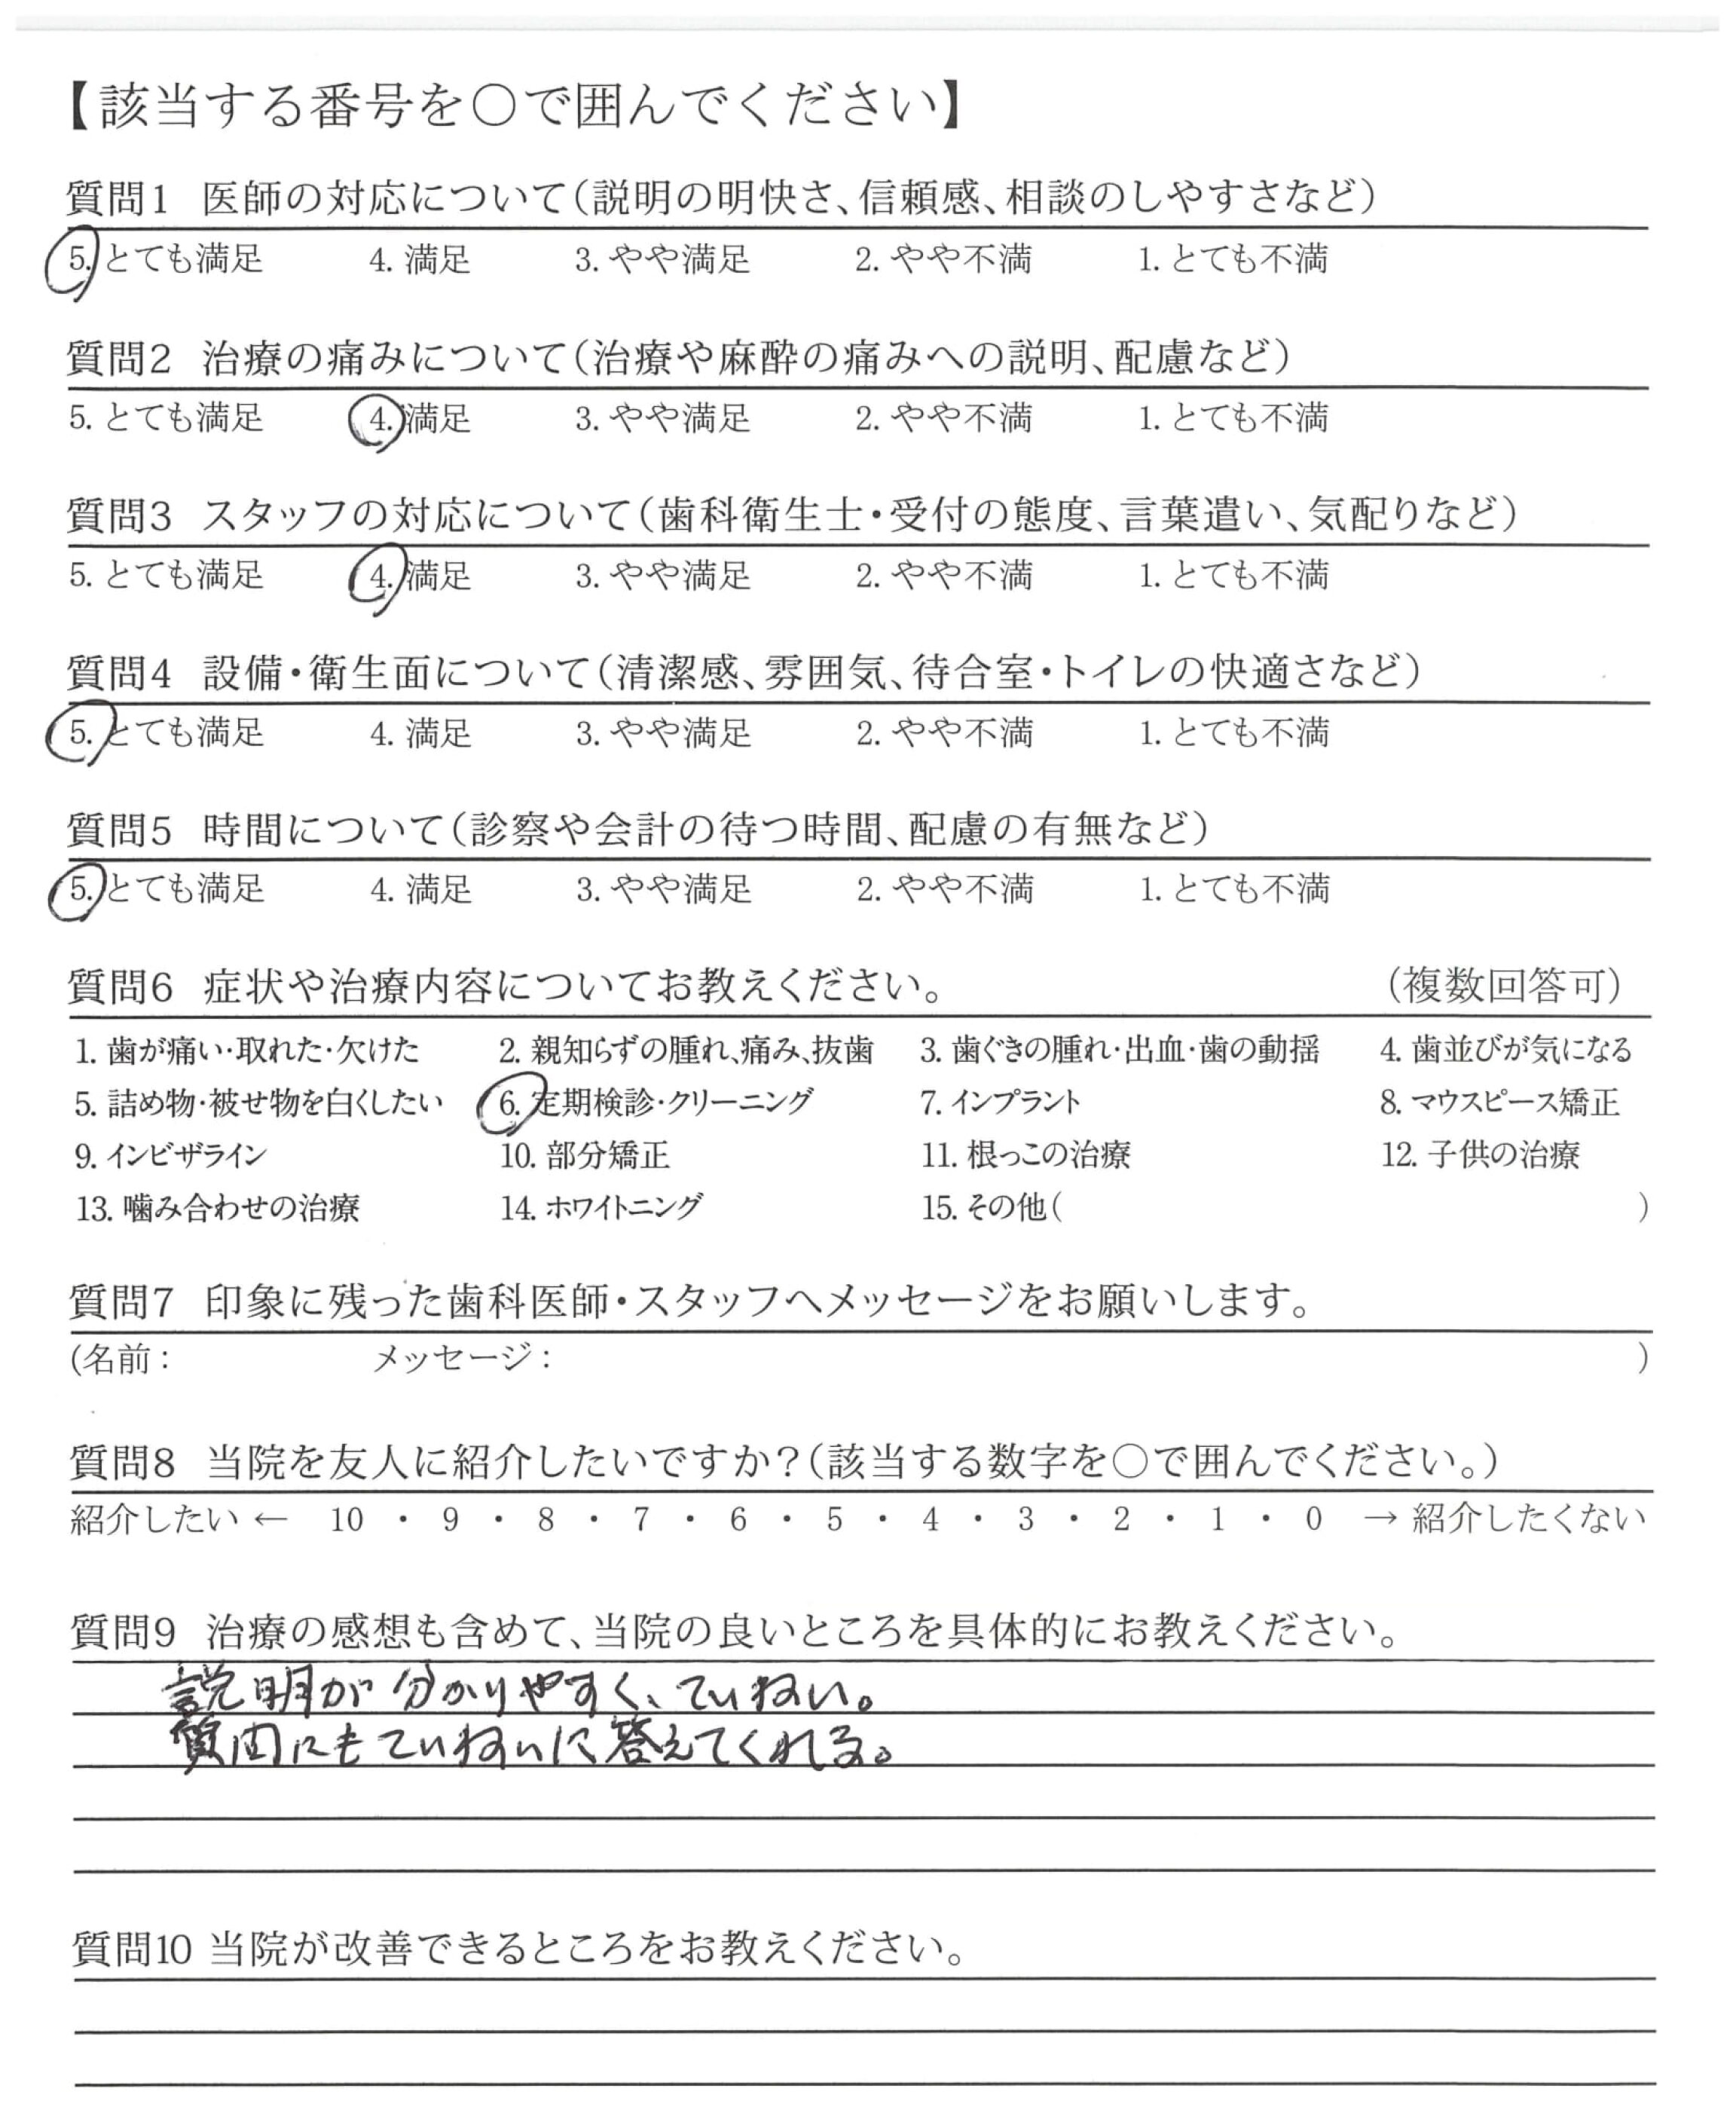 【該当する番号を〇で囲んでください】
質問1 医師の対応について(説明の明快さ、信頼感、相談のしやすさなど)
5. とても満足 4. 満足 3. やや満足 2. やや不満 1. とても不満
質問2 治療の痛みについて(治療や麻酔の痛みへの説明、配慮など)
5. とても満足 4. 満足 3. やや満足 2. やや不満 1. とても不満
質問3 スタッフの対応について(歯科衛生士・受付の態度、言葉遣い、気配りなど)
5. とても満足 4. 満足 3. やや満足 2. やや不満 1. とても不満
質問4 設備・衛生面について(清潔感、雰囲気、待合室・トイレの快適さなど)
5. とても満足 4. 満足 3. やや満足 2. やや不満 1. とても不満
質問5 時間について(診察や会計の待つ時間、配慮の有無など)
5. とても満足 4. 満足 3. やや満足 2. やや不満 1. とても不満
質問6 症状や治療内容についてお教えください。 (複数回答可)
1. 歯が痛い・取れた・欠けた 2. 親知らずの腫れ、痛み、抜歯 3. 歯ぐきの腫れ・出血・歯の動揺 4. 歯並びが気になる
5. 詰め物・被せ物を白くしたい 6. 定期検診・クリーニング 7. インプラント 8. マウスピース矯正
9. インビザライン 10. 部分矯正 11. 根っこの治療 12. 子供の治療
13. 噛み合わせの治療 14. ホワイトニング 15. その他( )
質問7 印象に残った歯科医師・スタッフへメッセージをお願いします。
(名前: メッセージ: )
質問8 当院を友人に紹介したいですか?(該当する数字を〇で囲んでください。)
紹介したい ← 10 ・ 9 ・ 8 ・ 7 ・ 6 ・ 5 ・ 4 ・ 3 ・ 2 ・ 1 ・ 0 → 紹介したくない
質問9 治療の感想も含めて、当院の良いところを具体的にお教えください。
説明が分かりやすく、ていねい。
質問にもていねいに答えてくれる。
質問10 当院が改善できるところをお教えください。